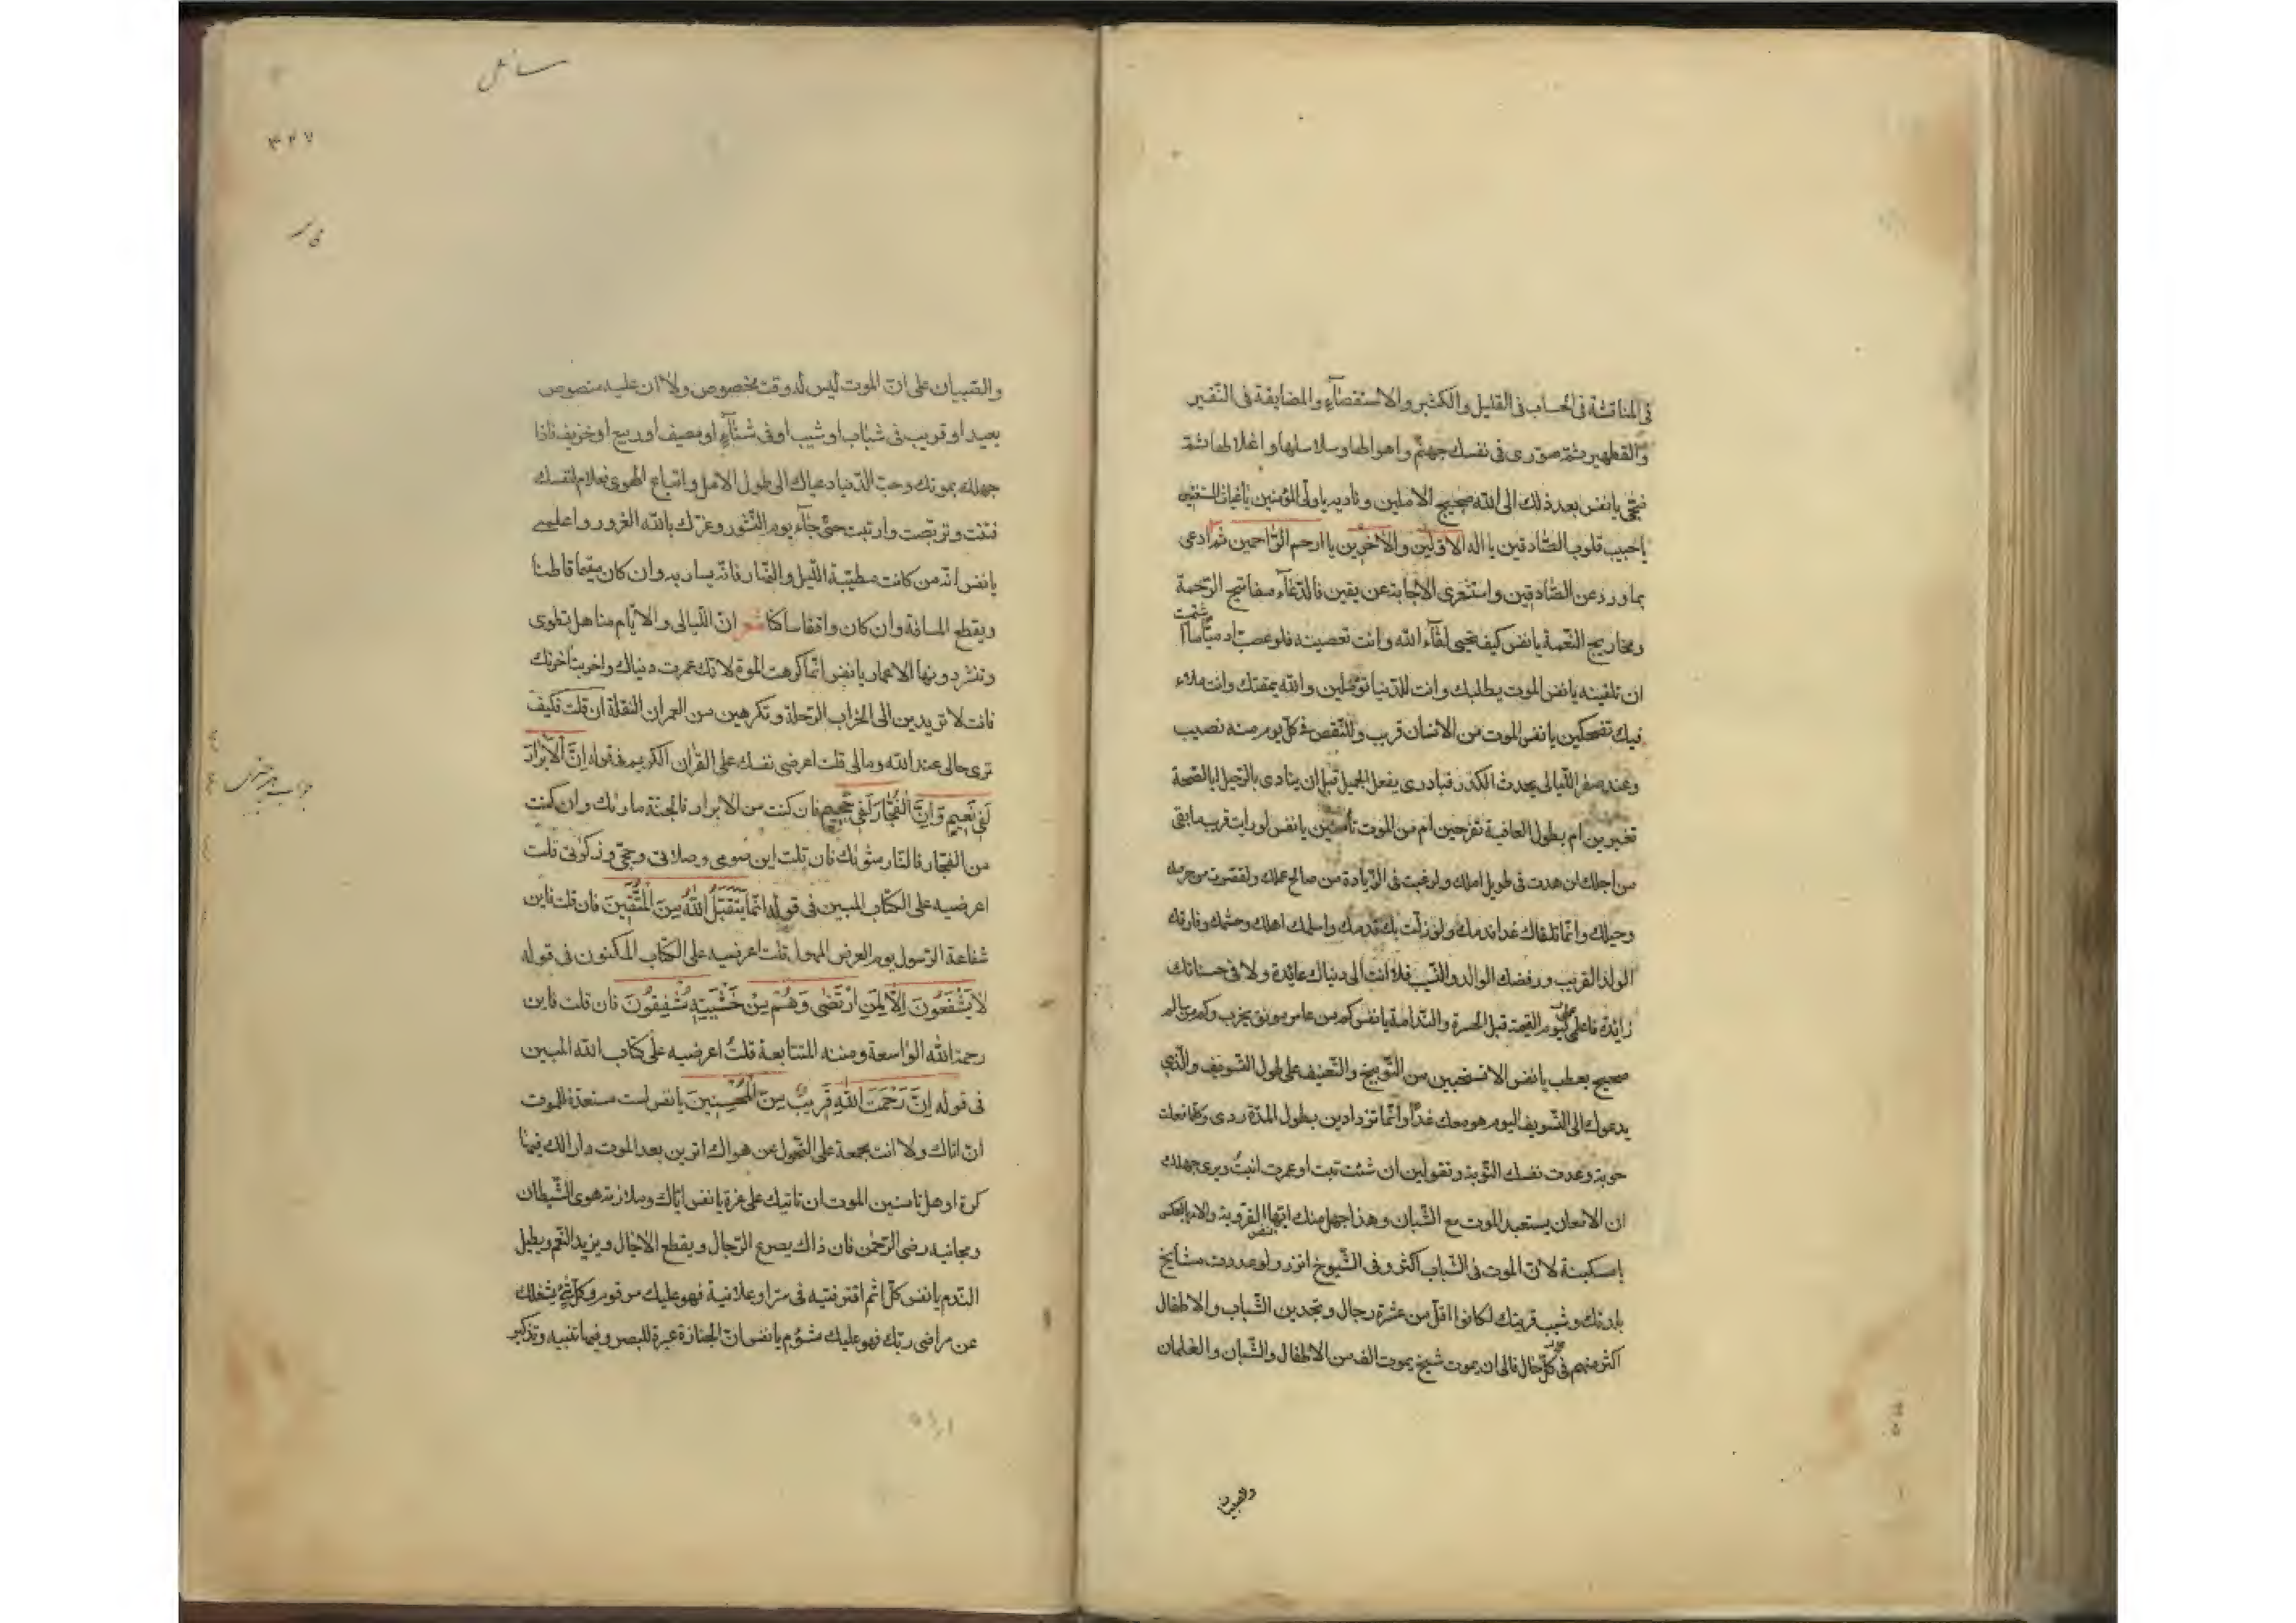 فى المناقشة فى الحساب فى القليل والكثير والاستقصآء والمضايقة فى النّقير
والقطمير ثمّ صوّرى فى نفسك جهنّم واهوالها وسلاسلها واغلالها ثمّ
ضجّى يا نفس بعد ذلك الى الله ضجيج الآملين وناديه يا ولىّ المؤمنين يا غياث المستغيثين
يا حبيب قلوب الصّادقين يا اله الاوّلين والآخرين يا ارحم الرّاحمين ثم ادعى
بما ورد عن الصّادقين واستغرى الاجابة عن يقين فالدّعآء مفاتيح الرّحمة
ومخاريج النّعمة يا نفس كيف تحبى لقآء الله وانت تعصينه فلو عصيت ادميّا ما شئت
ان تلقينه يا نفس الموت يطلبك وانت للدّنيا تؤمّلين والله يمقتك وانت ملاء
فيك تضحكين يا نفس الموت من الانسان قريب وللنّقص فى كلّ يوم منه نصيب
وعند صفو اللّيالى يحدث الكدر فبادرى بفعل الجميل قبل ان ينادى بالرّحيل ابالصّحة
تغترين ام بطول العافية تفرحين ام من الموت تأمنين يا نفس لو رايت قريب ما بقى
من اجلك لزهدت فى طويل املك ولرغبت فى الزّيادة من صالح عملك ولقصرت من حرصك
وحيلك وانّما تلقاك غدا ندمك ولو زلّت بك قدمك واسلمك اهلك وحشمك وفارقك
الولد القريب ورفضك الوالد والنّسيب فلا انت الى دنياك عائدة ولا فى حسناتك
زائدة فاعملى ليوم القيمة قبل الحسرة والنّدامة يا نفس كم من عامر مونق يخرب وكم من سالم
صحيح يعطب يا نفس الا تستحيين من التّوبيخ والتّعنيف على طول التّسويف والّذى
يدعوك الى التّسويف اليوم هو معك غدا وانّما تزدادين بطول المدّة ردى وكلّما فعلت
حوبة وعدت نفسك التّوبة وتقولين ان شئت تبت او عمرت انبتُ ويرى جهلك
ان الانسان يستبعد الموت مع الشّبان وهذا جهل منك ايتها النفس القرونة والامر بالعكس
يا مسكينة لانّ الموت فى الشّباب اكثر وفى الشّيوخ انزر ولو عددت مشايخ
بلدتك وشيب قريتك لكانوا اقلّ من عشرة رجال وتجدين الشّباب والاطفال
اكثر منهم فى كلّ حال فالى ان يموت شيخ يموت الف من الاطفال والشّبان والغلمان
والصبيان
سائل
٣٢٧
والصّبيان على انّ الموت ليس له وقت مخصوص ولا اان عليه منصوص
بعيد او قريب فى شباب او شيب او فى شتآء او مصيف او ربيع او خريف فاذا
جهلك بموتك وحبّ الدّنيا دعياك الى طول الامل واتباع الهوى فعلام لنفسك
فتنت وتربّصت وارتبت حتىّ جآء يوم النّشور وغرّك بالله الغرور واعلمى
يا نفس انّه من كانت مطيّته اللّيل والنّهار فانّه يسار به وان كان مقيما قاطنا
ويقطع المسافة وان كان واقفا ساكنا شعر انّ اللّيالى والايّام مناهل تطوى
وتنشر دونها الاعمار يا نفس انّما كرهت الموة لانّك عمرت دنياك واخربت اخرتك
فانت لا تريدين الى الخراب الرّحلة وتكرهين من العمران النقلة ان قلت فكيف
ترى حالى عند الله ومالى قلت اعرضى نفسك على القرآن الكريم فى قوله اِنَّ الْاَبْرَارَ
لَفِى نَعِيمٍ وَّاِنَّ الْفُجّارَ لَفِى جَحِيمٍ فان كنت من الابرار فالجنّة ماوٰىك وان كنت
من الفجّار فالنّار مثوٰىك فان قلت اين صومى وصلاتى وحجّى وزكوٰتى قلت
اعرضيه على الكتاب المبين فى قوله انّما يَتَقَبَّلُ اللهُ مِنَ الْمُتَّقِينَ فان قلت فاين
شفاعة الرّسول يوم العرض المهول قلت اعرضيه على الكتاب المكنون فى قوله
لَا يَشْفَعُونَ اِلّا لِمَنِ ارْتَضٰى وَهُمْ مِنْ خَشْيَتِهِ مُشْفِقُونَ فان قلت فاين
رحمة الله الواسعة ومننه المتتابعة قلتُ اعرضيه على كتاب الله المبين
فى قوله اِنَّ رَحْمَتَ اللهِ قَرِيبٌ مِنَ الْمُحْسِنِينَ يا نفس لست مستعدّة للموت
ان اتاك ولا انت مجمعة على التّحول عن هواك اترين بعد الموت دارا لك فيها
كرة او هل تامنين الموت ان تاتيك على غرة يا نفس ايّاك وملازمة هوى الشّيطان
ومجانبة رضى الرّحمٰن فان ذاك يصرع الرّجال ويقطع الاجال ويزيد النقم ويطيل
النّدم يا نفس كلّ اثم اقترفتيه فى سرّ او علانية فهو عليك مرقوم وكلّ شئ يشغلك
عن مراضى ربّك فهو عليك مشؤم يا نفس انّ الجنازة عبرة للبصر وفيها تنبيه وتذكير